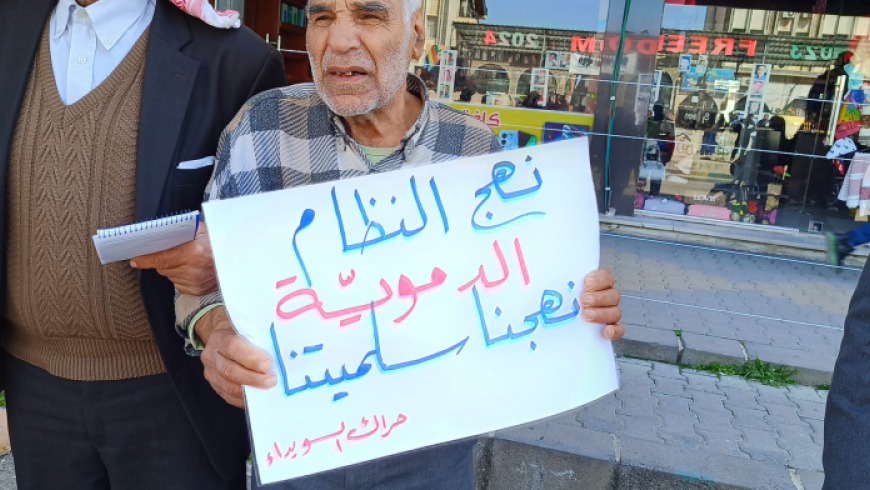 2024
FREEDOM
نهج النظام
الدمويّة
نهجنا سلميتنا
حراك السويداء